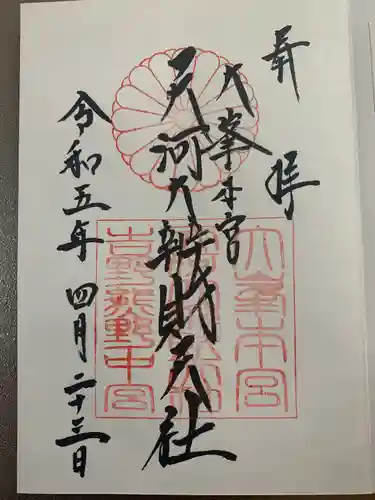 奉拝
大峯本宮
天河大辨財天社
令和五年 四月二十三日
大峯本宮
吉野熊野中宮